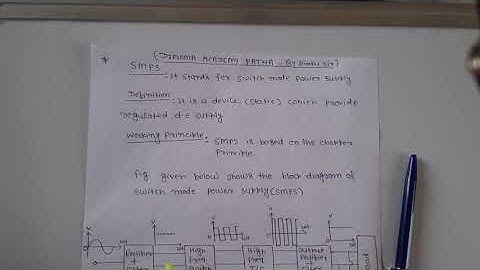 * [DIPLOMA ACADEMY PATNA - By Pintu Sir]
SMPS : It stands for switch mode power supply
Definition : It is a device (static) which provide
regulated d.c supply
Working Principle : SMPS is based on the chopper
Principle.
fig. given below shows the block diagram of
switch mode power supply (SMPS)
Rectifier High High Output Rectifier
Filter freq freq